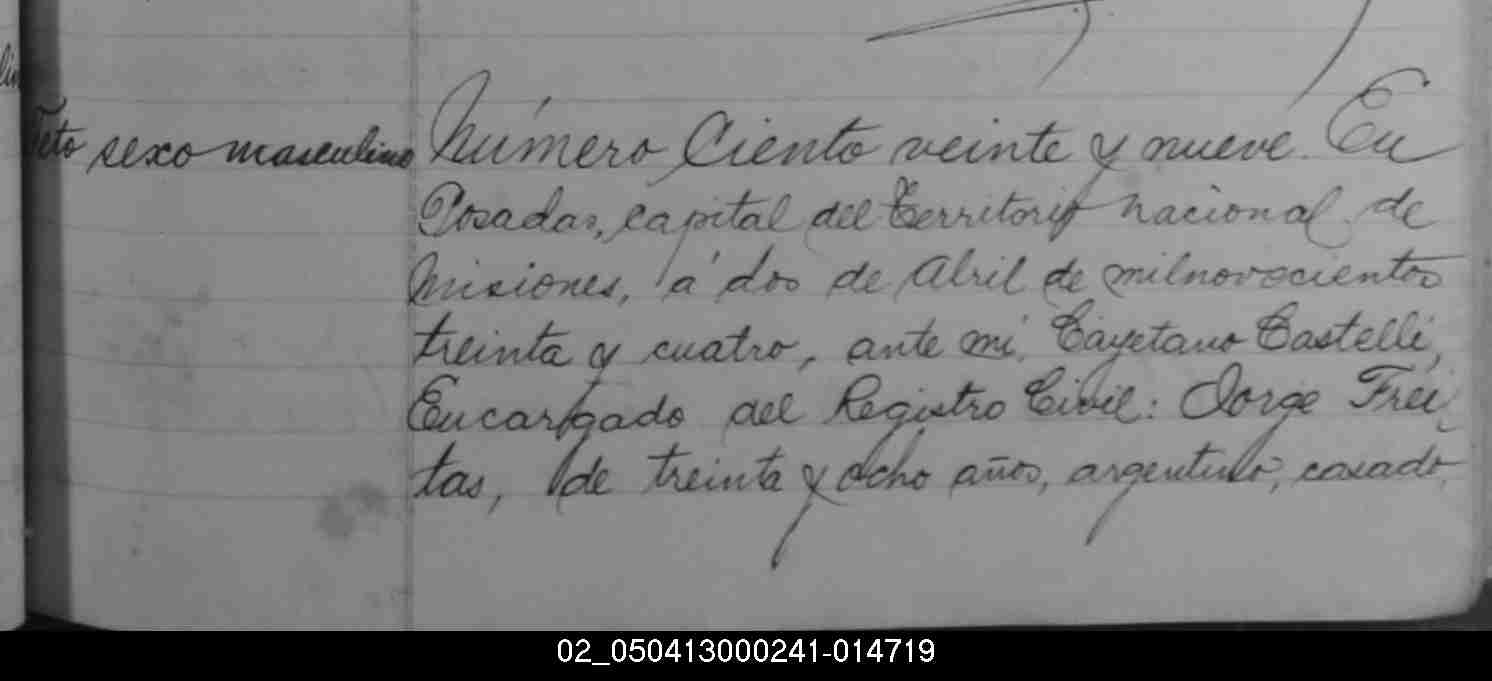 Feto sexo masculino
Número Ciento veinte y nueve. En
Posadas, capital del Territorio nacional de
Misiones, á dos de Abril de milnovecientos
treinta y cuatro, ante mi, Cayetano Castelli,
Encargado del Registro Civil: Jorge Frei
tas, de treinta y ocho años, argentino, casado,
02_050413000241-014719